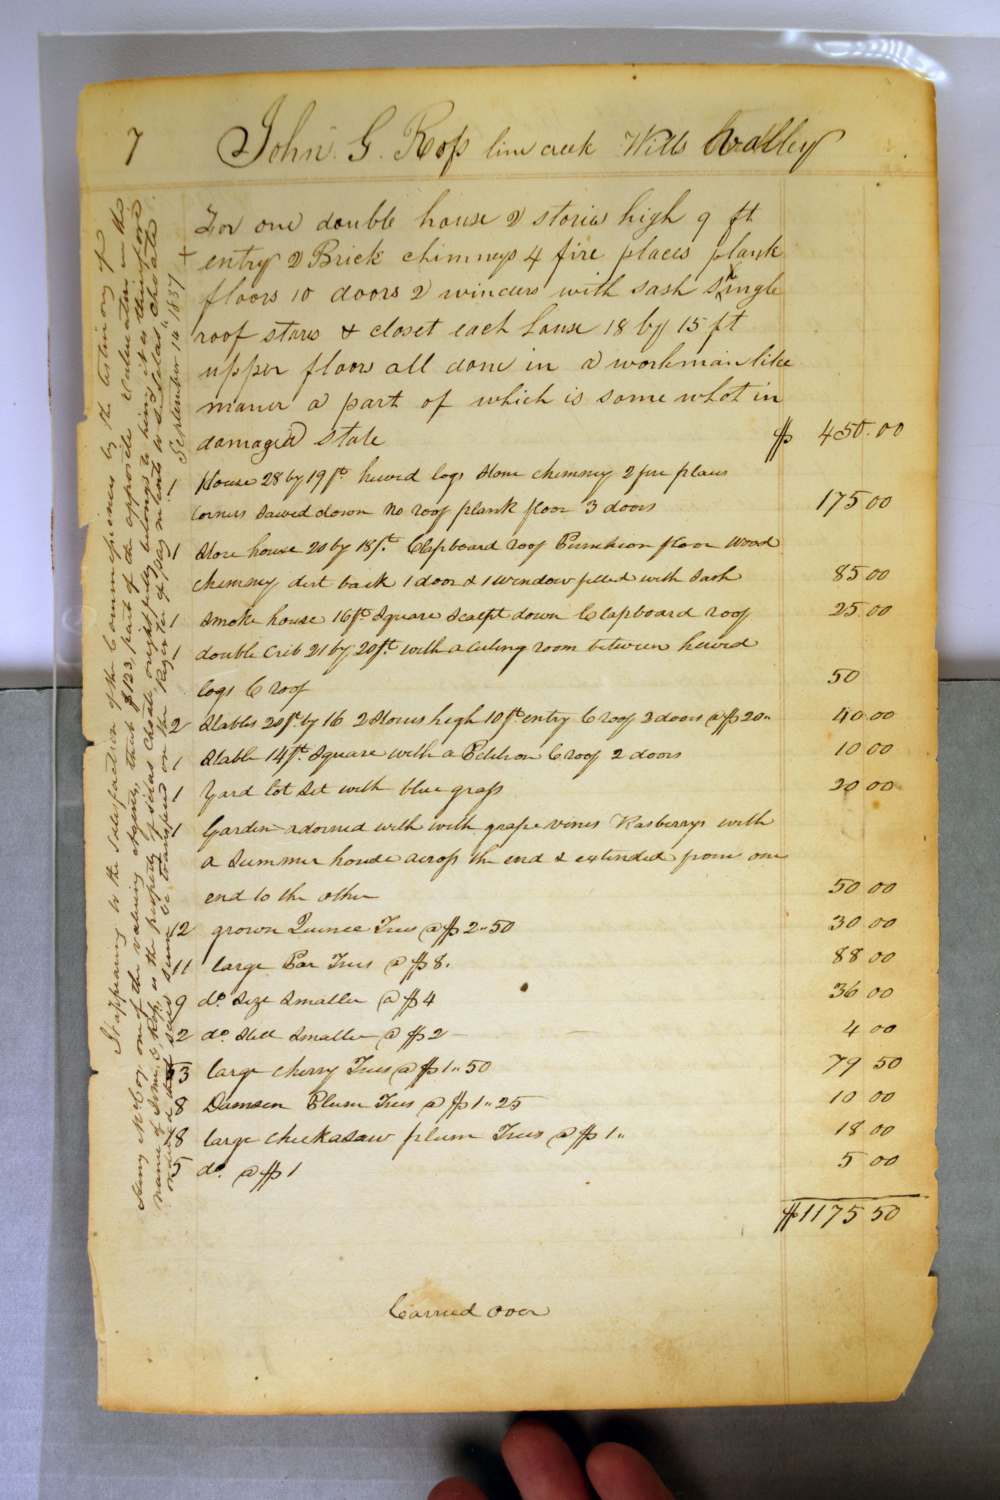 7 John G. Ross line creek Wills Valley
For one double house 2 stories high 9 ft
+ entry 2 Brick chimneys 4 fire places plank
floors 10 doors 2 winders with sash single
roof stares & closet each house 18 by 15 ft
upper floors all done in a workman like
maner a part of which is some what in
damaged state $ 450.00
1 House 28 by 19 ft. hewed logs stone chimney 2 fire places
corners sawed down no roof plank floor 3 doors 175 00
1 Store house 20 by 18 ft. Clapboard roof Puncheon floor wood
chimney dirt back 1 door & 1 window filled with sash 85 00
1 Smoke house 16 ft square scalpt down Clapboard roof 25 00
1 double Crib 21 by 20 ft. with a ceiling room between hewed
logs C roof 50
2 Stables 20 ft by 16 2 stories high 10 ft entry C roof 2 doors @ $20 " 40.00
1 Stable 14 ft. square with a Petition C roof 2 doors 10 00
1 Yard lot set with blue grass 20 00
1 Garden adorned with with grape vines Rasberrys with
a summer house across the end & extended from one
end to the other 50 00
12 grown Quince Trees @ $2"50 30 00
11 large Pear Trees @ $8. 88 00
9 do. size smaller @ $4 36 00
2 do. still smaller @ $2 4 00
53 large cherry Trees @ $1"50 79 50
8 Damsen Plum Trees @ $1"25 10 00
18 large chickasaw plum Trees @ $1" 18 00
5 do. @ $1 5 00
$1175 50
Carried over
It appearing to the satisfaction of the Commissioners by the testimony of
Henry McCoy one of the valuing Agents, that $123, part of the opposite valuation in the
name of John G. Ross, is the property of Silas Choate rightfully belongs to him, it is therefore
ordered that said sum be transfered on the Register of payments to sd Silas Choate
September 14th 1837